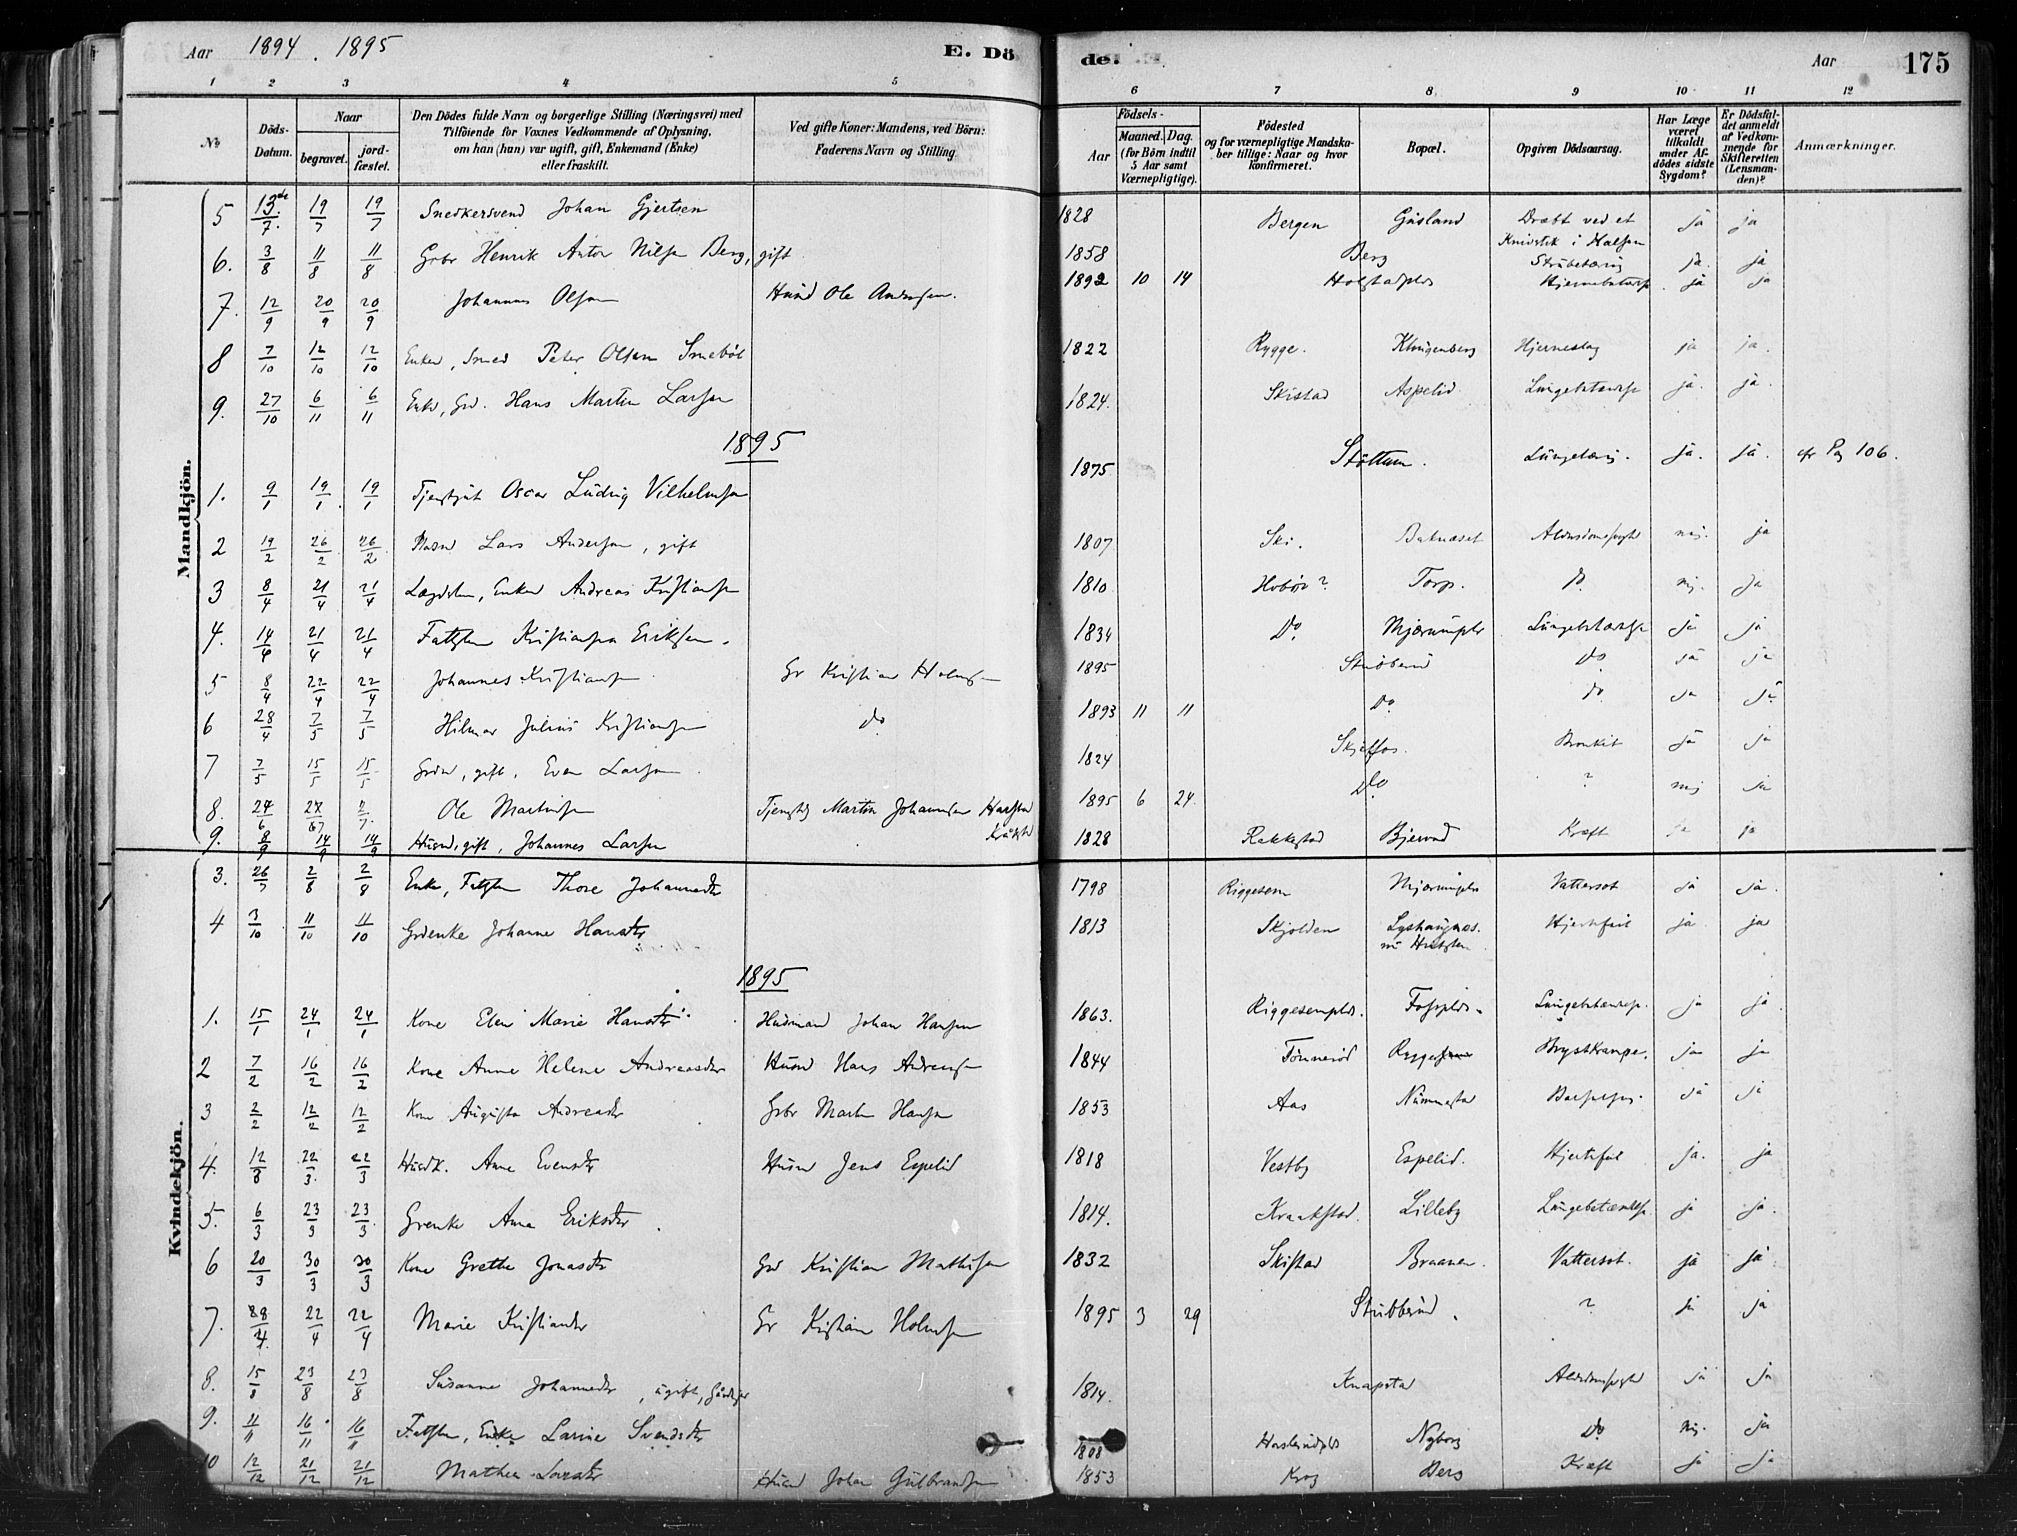 Aar 1894. 1895 E. Dö
de. Aar 175
1 2 3 4 5 6 7 8 9 10 11 12
Mandkjön.
Kvindekjön.
No
Döds-Datum.
Naar
begravet. jord-fæstet.
Den Dödes fulde Navn og borgerlige Stilling (Næringsvei) med
Tilföiende for Voxnes Vedkommende af Oplysning,
om han (hun) var ugift, gift, Enkemand (Enke)
eller fraskilt.
Ved gifte Koner: Mandens, ved Börn:
Faderens Navn og Stilling.
Födsels-
Aar Maaned. Dag.
(for Börn indtil 5 Aar samt Værnepligtige).
Födested
og for værnepligtige Mandska-
ber tillige: Naar og hvor
konfirmeret.
Bopæl.
Opgiven Dödsaarsag.
Har Læge været tilkaldt under Af-dödes sidste Sygdom?
Er Dödsfal-det anmeldt af Vedkom-mende for Skifteretten (Lensman-den)?
Anmærkninger.
5 13/7 19/7 19/7 Snedkersvend Johan Gjertsen 1828 Bergen Gusland Dræbt ved et Knivstik i Halsen ja ja
6. 3/8 11/8 11/8 Gbr Henrik Anton Nilsen Berg, gift 1858 Berg Strubetæring ja. ja
7. 12/9 20/9 20/9 Johannes Olsen Husmd Ole Andersen. 1892 10 14 Holstadpls ja ja
8 7/10 12/10 12/10 Enkem, Smed Peter Olsen Smebøl 1822 Rygge. Klingenberg Hjerneslag ja ja.
9. 27/10 6/11 6/11 Enkm, Grd. Hans Martin Larsen 1824. Skistad Aspelid Lungebetændelse ja. ja.
1895
1. 9/1 19/1 19/1 Tjenstgut Oscar Ludvig Vilhelmsen 1875 Støttum. Lungetæring. ja. ja. cfr Pag 106.
2 19/2 26/2 26/2 Lars Andersen, gift 1807 Ski. Alderdomssvagh nej. ja
3 8/4 21/4 21/4 Lægdslem, Enkem Andreas Kristiansen 1810 Hobøl? Torp. do nej. ja
4. 14/4 21/4 21/4 Fattslem Kristiansen Eriksen. 1834 Do. Mjærumpls Lungebetændelse ja ja
5 8/4 22/4 22/4 Johannes Kristiansen Gr Kristian Holmsen 1895 Stubberud do ja ja
6 28/4 7/5 7/5 Hilmar Julius Kristiansen do 1893 11 11 do do ja ja
7 7/5 15/5 15/5 Grdm, gift, Even Larsen 1824 Skjelfos. Bronkit ja ja
8. 24/6 7/7 Ole Martinsen Tjenstk Martin Johannesen Harstad Kråkst 1895 6 24. Do ? nej ja
9. 8/9 14/9 14/9 Husmd, gift, Johannes Larsen 1828 Rakkestad Bjerud Kræft ja ja
3. 26/7 2/8 2/8 Enke, Fattslem Thore Johannesdtr 1798 Riggesem Mjærumpls Vattersot ja ja.
4 3/10 11/10 11/10 Grdenke Johanne Hansdtr 1813 Skjolden Hjertefeil ja. ja
1895
1. 15/1 24/1 24/1 Kone Elen Marie Hansdtr. Husmand Johan Hansen 1863. Riggesempls. Fospls. Lungebetændelse. ja ja
2 7/2 16/2 16/2 Kone Anne Helene Andreasdtr Husmd Hans Andersen 1844 Tønnerød Brystkrampe. ja ja
3 2/2 12/2 12/2 Kone Augusta Andreasdtr Gbr Martin Hansen 1853 Aas Nummestad Barselfeb. ja ja
4. 12/3 22/3. 22/3 Husmk. Anne Evensdtr Husmd Jens Espelid 1818 Vestby Espelid. Hjertefeil ja. ja
5. 6/3 23/3 23/3 Grenke Anna Eriksdtr. 1814. Kraakstad. Lilleby Lungebetændelse ja ja.
6 20/3 30/3 30/3 Kone Grethe Jonasdtr Grd Kristian Mathisen 1832 Skistad Braanen. Vattersot. ja ja
7. 22/4 22/4 Marie Kristiansdtr Gr Kristian Holmsen 1895 3 29 Stubberud. ? ja ja
8. 15/8 23/8 23/8 Susanne Johannesdtr, ugift, 1814. Knapstad Alderdomssvagh ja ja
9. 11/11 16/11 16/11 Fattslem, Enke Larine Svendsdtr 1808 Haslerudpls Nyborg Do nej. ja
10 12/12 21/12 21/12 Mathea Larsdtr Husmd Johan Gulbrandsen 1853 Krog Berg Kræft ja ja